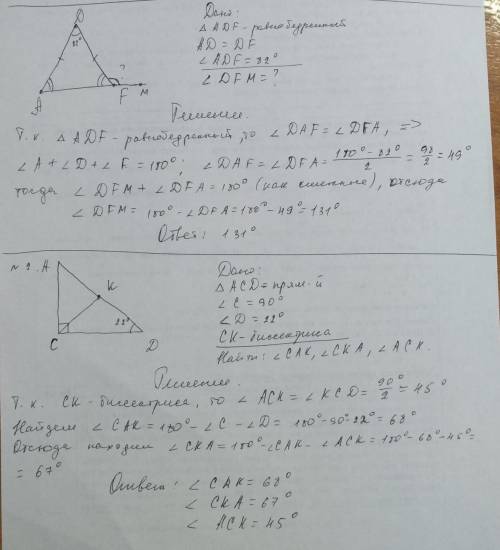 D
82°
?
A
F
M
Дано:
△ ADF - равнобедренный
AD = DF
∠ ADF = 82°
∠ DFM = ?
Решение.
Т.к. △ ADF - равнобедренный, то ∠ DAF = ∠ DFA, =>
∠ A + ∠ D + ∠ F = 180°; ∠ DAF = ∠ DFA = (180° - 82°)/2 = 98/2 = 49°
тогда ∠ DFM + ∠ DFA = 180° (как смежные), отсюда
∠ DFM = 180° - ∠ DFA = 180° - 49° = 131°
Ответ: 131°
№ 2. A
K
22°
C
D
Дано:
△ ACD = прям-й
∠ C = 90°
∠ D = 22°
CK - биссектриса
Найти: ∠ CAK, ∠ CKA, ∠ ACK.
Решение.
Т.к. CK - биссектриса, то ∠ ACK = ∠ KCD = 90°/2 = 45°
Найдем ∠ CAK = 180° - ∠ C - ∠ D = 180° - 90° - 22° = 68°
Отсюда находим ∠ CKA = 180° - ∠ CAK - ∠ ACK = 180° - 68° - 45° =
= 67°
Ответ: ∠ CAK = 68°
∠ CKA = 67°
∠ ACK = 45°